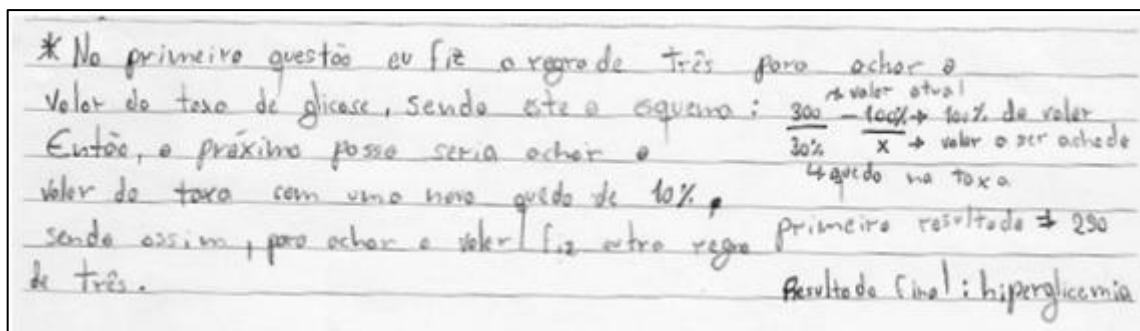 * Na primeira questão eu fiz a regra de três para achar o
valor da taxa de glicose, sendo este o esquema:
→ valor atual
300 – 100% → 100% do valor
30% x → valor a ser achado
↳ queda na taxa
Então, o próximo passo seria achar o
valor da taxa com uma nova queda de 10%,
sendo assim, para achar o valor fiz outra regra
de três.
primeiro resultado → 290
Resultado final: hiperglicemia